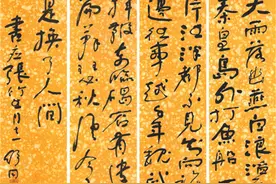 大雨落幽燕白浪滔天
秦皇島外打魚船一
片汪洋都不見知向誰
邊往事越千年魏武
揮鞭東臨碣石有遺
篇蕭瑟秋風今又
是換了人間